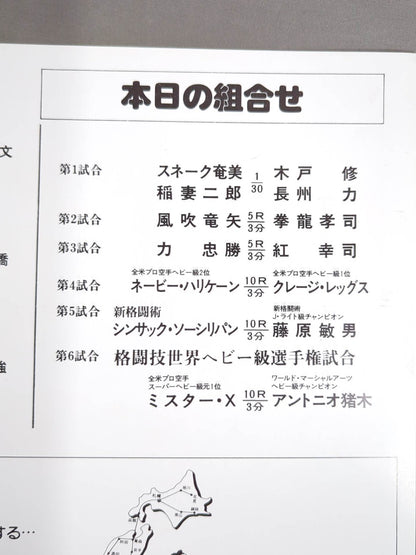 本日の組合せ
文
第1試合 スネーク奄美 1/30 木戸 修
稲妻二郎 長州 力
第2試合 風吹竜矢 5R/3分 拳龍孝司
第3試合 力 忠勝 5R/3分 紅 幸司
橋
全米プロ空手ヘビー級2位 全米プロ空手ヘビー級1位
第4試合 ネービー・ハリケーン 10R/3分 クレージ・レッグス
第5試合 新格闘術 新格闘術
J・ライト級チャンピオン
シンサック・ソーシリパン 10R/3分 藤原敏男
第6試合 格闘技世界ヘビー級選手権試合
強
全米プロ空手 ワールド・マーシャルアーツ
スーパーヘビー級元1位 ヘビー級チャンピオン
ミスター・X 10R/3分 アントニオ猪木
する…